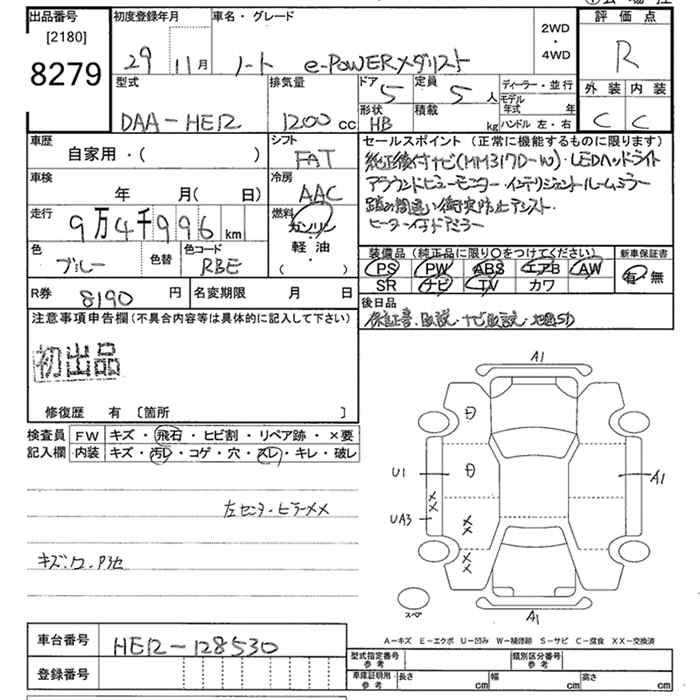 出品番号
[2180]
8279
初度登録年月
29 11月
車名・グレード
ノート e-POWERメダリスト
2WD
・
4WD
評価点
R
外装 内装
C C
型式
DAA-HE12
排気量
1200cc
ドア 5
定員 5人
形状 HB
積載 kg
ディーラー・並行
モデル年式 年
ハンドル 左・右
車歴
自家用・( )
シフト
FAT
車検
年 月(日)
冷房
AAC
走行
9万4千996km
燃料
ガソリン
軽・油
( )
色
ブルー
色替
色コード
RBE
R券 8190円
名変期限 月 日
セールスポイント(正常に機能するものに限ります)
純正後付ナビ(MM317D-W)・LEDヘッドライト
アラウンドビューモニター・インテリジェントルームミラー
踏み間違い衝突防止アシスト・
ヒーター付ドアミラー
装備品(純正品に限り○をつけてください)
新車保証書
PS PW ABS エアB AW
SR ナビ TV カワ
有・無
後日品
保証書・取説・ナビ取説・地図SD
注意事項申告欄(不具合内容等は具体的に記入して下さい)
初出品
修復歴 有 [箇所 ]
検査員
記入欄
FW キズ・飛石・ヒビ割・リペア跡・×要
内装 キズ・汚レ・コゲ・穴・スレ・キレ・破レ
左センターピラーXX
キズ・ワ・P他
A1
U1
A1
UA3
XX
XX
XX
スペ
A1
A－キズ E－エクボ U－凹み W－補修跡 S－サビ C－腐食 XX－交換済
車台番号 HE12-128530
登録番号
型式指定番号
参考
類別区分番号
参考
車庫証明用・参考
長さ cm
幅 cm
高さ cm